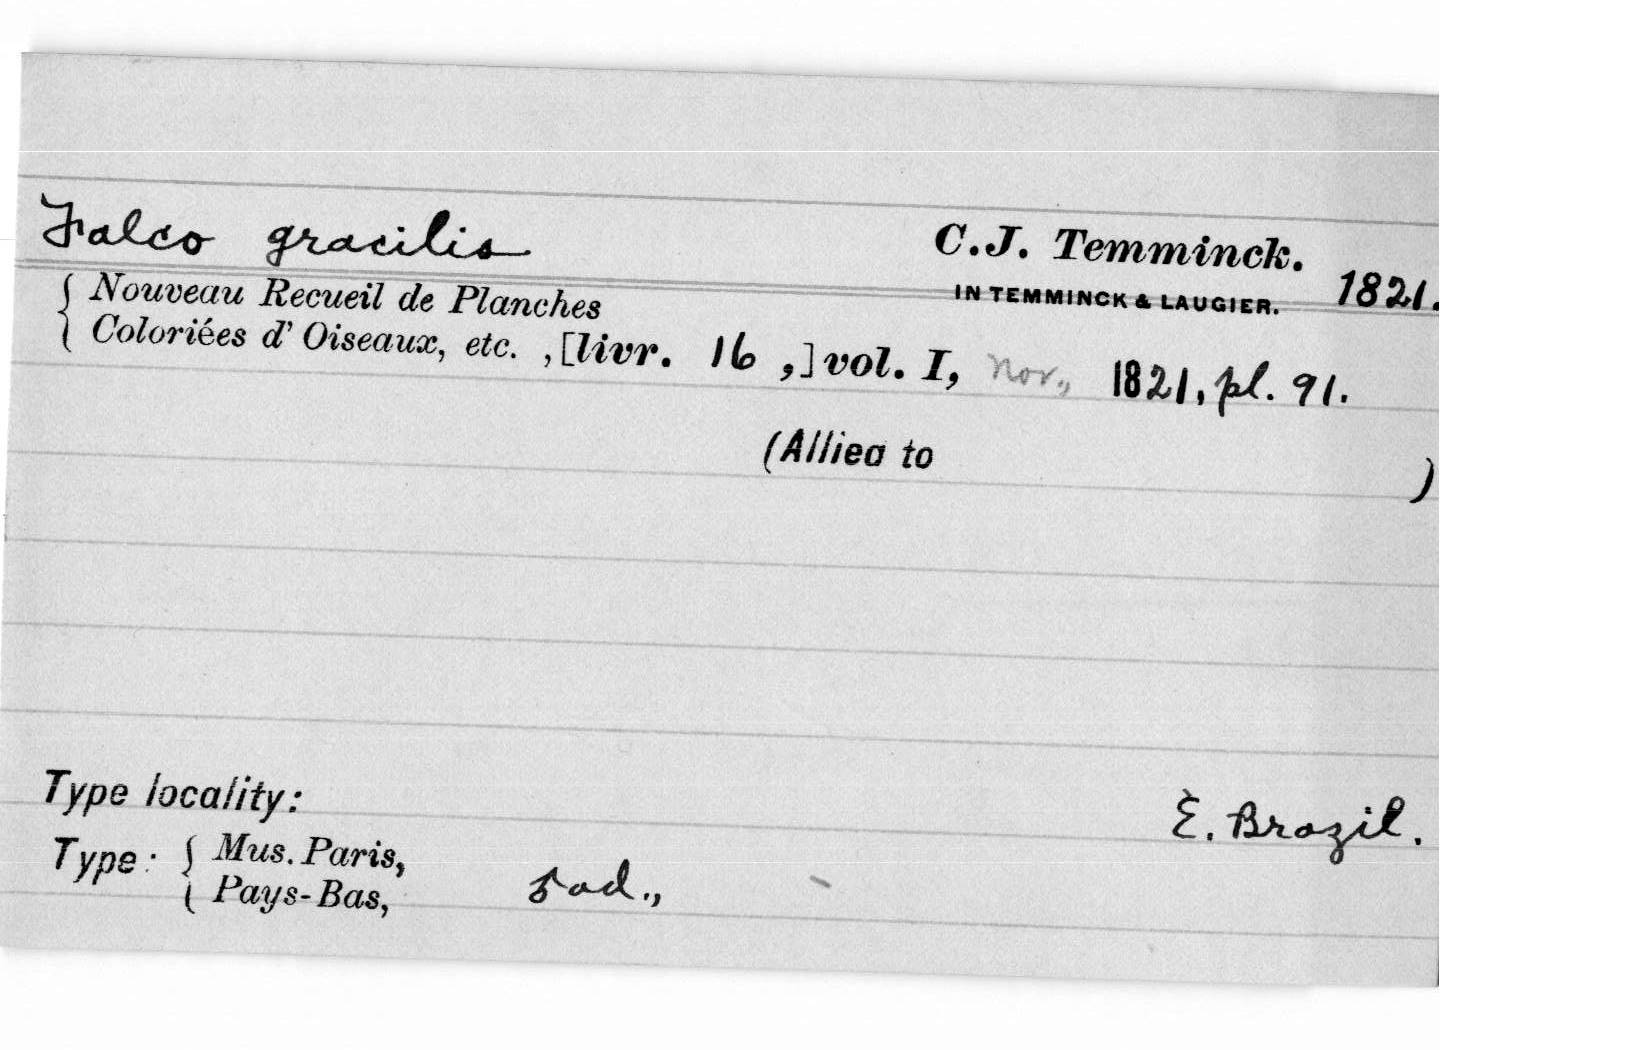 Falco gracilis C.J. Temminck.
IN TEMMINCK & LAUGIER. 1821.
{ Nouveau Recueil de Planches
Coloriées d' Oiseaux, etc. , [livr. 16 ,] vol. I, Nov., 1821, pl. 91.
(Allied to )
Type locality: E. Brazil.
Type: { Mus. Paris,
Pays-Bas, ad.,